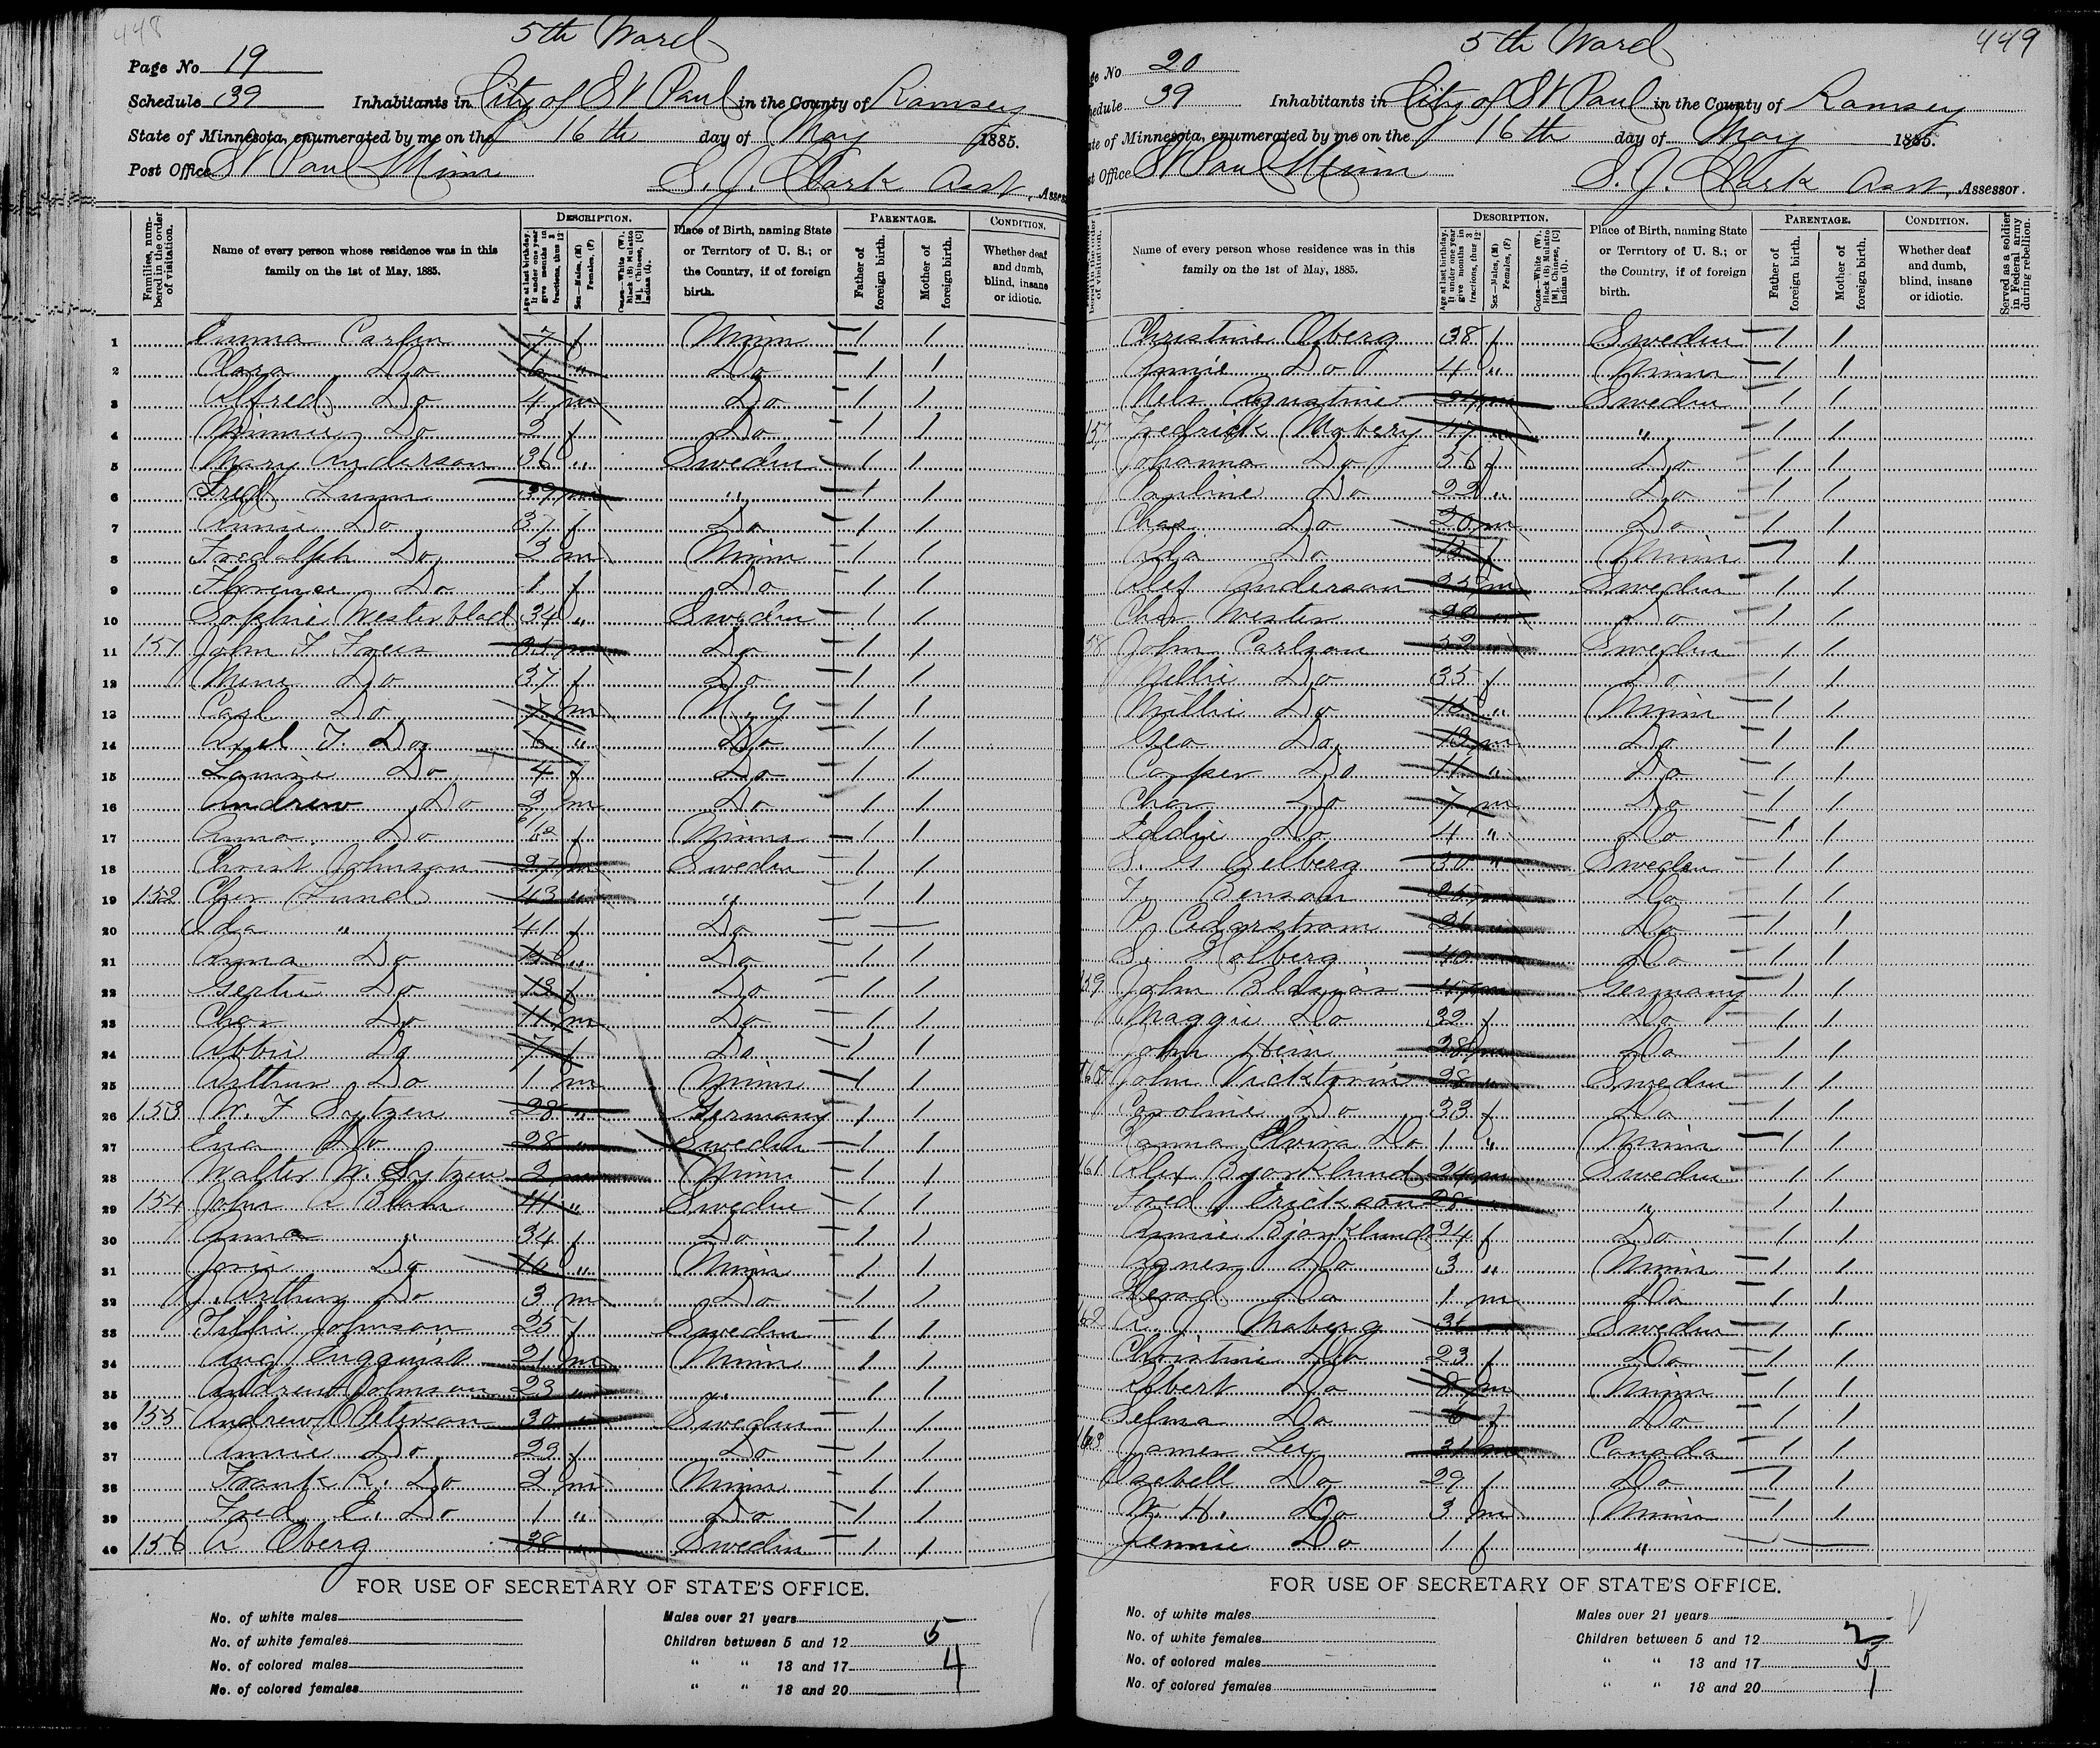 448
5th Ward
Page No 19
Schedule 39 Inhabitants in City of St Paul in the County of Ramsey
State of Minnesota, enumerated by me on the 16th day of May 1885.
Post Office St Paul Minn
S. J. Clark Asst, Assessor
Families, numbered in the order of visitation.
Name of every person whose residence was in this family on the 1st of May, 1885.
DESCRIPTION.
Age at last birthday. If under one year give months in fractions, thus 3/12
Sex—Males, (M) Females, (F)
COLOR—White (W). Black (B) Mulatto [M]. Chinese, [C] Indian (I).
Place of Birth, naming State or Territory of U. S.; or the Country, if of foreign birth.
PARENTAGE.
Father of foreign birth.
Mother of foreign birth.
CONDITION.
Whether deaf and dumb, blind, insane or idiotic.
1 Emma Carlin 7 f Minn 1 1
2 Clara Do 6 " Do 1 1
3 Alfred Do 4 m Do 1 1
4 Minnie Do 2 f Do 1 1
5 Mary Anderson 36 " Sweden 1 1
6 Fred Lunn 39 m " 1 1
7 Annie Do 37 f Do 1 1
8 Fredolph Do 2 m Minn 1 1
9 Florence Do 1 f Do 1 1
10 Sophie Westerblad 34 " Sweden 1 1
11 151 John F Frees 35 m Do 1 1
12 Mene Do 37 f Do 1 1
13 Carl Do 7 m N. Y 1 1
14 Axel F. Do 6 " Do 1 1
15 Louize Do 4 f Do 1 1
16 Andrew Do 2 m Do 1 1
17 Anna Do 6/12 f Minn 1 1
18 Christ Johnson 27 m Sweden 1 1
19 152 Chas Lund 43 " " 1 1
20 Ida " 41 f Do
21 Anna Do " Do 1 1
22 Gertie Do 13 f Do 1 1
23 Chas Do 11 m Do 1 1
24 Abbie Do 7 f Do 1 1
25 Arthur Do 1 m Minn 1 1
26 153 W. F Sytzen 28 " Germany 1 1
27 Ena Do 28 " Sweden 1 1
28 Walter W. Sytzen 2 m Minn 1 1
29 154 John A Blom 41 " Sweden 1 1
30 Anna " 34 f Do 1 1
31 Josie Do 14 " Minn 1 1
32 J. Arthur Do 3 m Do 1 1
33 Tillie Johnson 25 f Sweden 1 1
34 Aug Engquist 21 m Minn 1 1
35 Andrew Johnson 23 " " 1 1
36 155 Andrew Peterson 30 " Sweden 1 1
37 Annie Do 23 f Do 1 1
38 Frank R. Do 2 m Minn 1 1
39 Fred E. Do 1 " Do 1 1
40 156 A Oberg 38 " Sweden 1 1
FOR USE OF SECRETARY OF STATE'S OFFICE.
No. of white males
No. of white females
No. of colored males
No. of colored females
Males over 21 years
Children between 5 and 12 5
" " 13 and 17 4
" " 18 and 20
449
5th Ward
Page No 20
Schedule 39 Inhabitants in City of St Paul in the County of Ramsey
State of Minnesota, enumerated by me on the 16th day of May 1885.
Post Office St Paul Minn
S. J. Clark Asst, Assessor.
Name of every person whose residence was in this family on the 1st of May, 1885.
DESCRIPTION.
Age at last birthday. If under one year give months in fractions, thus 3/12
Sex—Males, (M) Females, (F)
COLOR—White (W). Black (B) Mulatto [M]. Chinese, [C] Indian (I).
Place of Birth, naming State or Territory of U. S.; or the Country, if of foreign birth.
PARENTAGE.
Father of foreign birth.
Mother of foreign birth.
CONDITION.
Whether deaf and dumb, blind, insane or idiotic.
Served as a soldier in Federal army during rebellion.
Christine Oberg 38 f Sweden 1 1
Annie Do 4 " Minn 1 1
Nels Agustine 24 m Sweden 1 1
157 Fredrick Moberg 47 " " 1 1
Johanna Do 56 f Do 1 1
Pauline Do 22 " Do 1 1
Chas Do 20 m Do 1 1
Ida Do 15 f Minn 1 1
Olef Anderson 25 m Sweden 1 1
Chas Wester " Do 1 1
158 John Carlson 52 " Sweden 1 1
Nellie Do 35 f Do 1 1
Millie Do 15 " Minn 1 1
Geo Do 13 m Do 1 1
Casper Do 11 " Do 1 1
Chas Do 7 m Do 1 1
Eddie Do 4 " Do 1 1
S. G Selberg 30 " Sweden 1 1
F. Benson 26 m Do 1 1
P Cedarstrom 26 " Do 1 1
S. Holberg 40 " Do 1 1
159 John Blasios 47 m Germany 1 1
Maggie Do 32 f Do 1 1
John Hein 28 m Do 1 1
160 John Vicktorin 28 " Sweden 1 1
Caroline Do 33 f Do 1 1
Hanna Elvira Do 1 " Minn 1 1
161 Alex Bjorklund 24 m Sweden 1 1
Fred Erickson 28 " 1 1
Annie Bjorklund 24 f Do 1 1
Agnes Do 3 " Minn 1 1
Herad Do 1 m Do 1 1
162 A. J Moberg 36 Sweden 1 1
Christine Do 23 f Do 1 1
Albert Do 8 m Minn 1 1
Selma Do 6 f Do 1 1
163 James Ley 31 m Canada 1 1
Isabell Do 29 f Do 1 1
W. H. Do 3 m Minn 1 1
Jennie Do 1 f "
FOR USE OF SECRETARY OF STATE'S OFFICE.
No. of white males
No. of white females
No. of colored males
No. of colored females
Males over 21 years
Children between 5 and 12
" " 13 and 17 5
" " 18 and 20 1